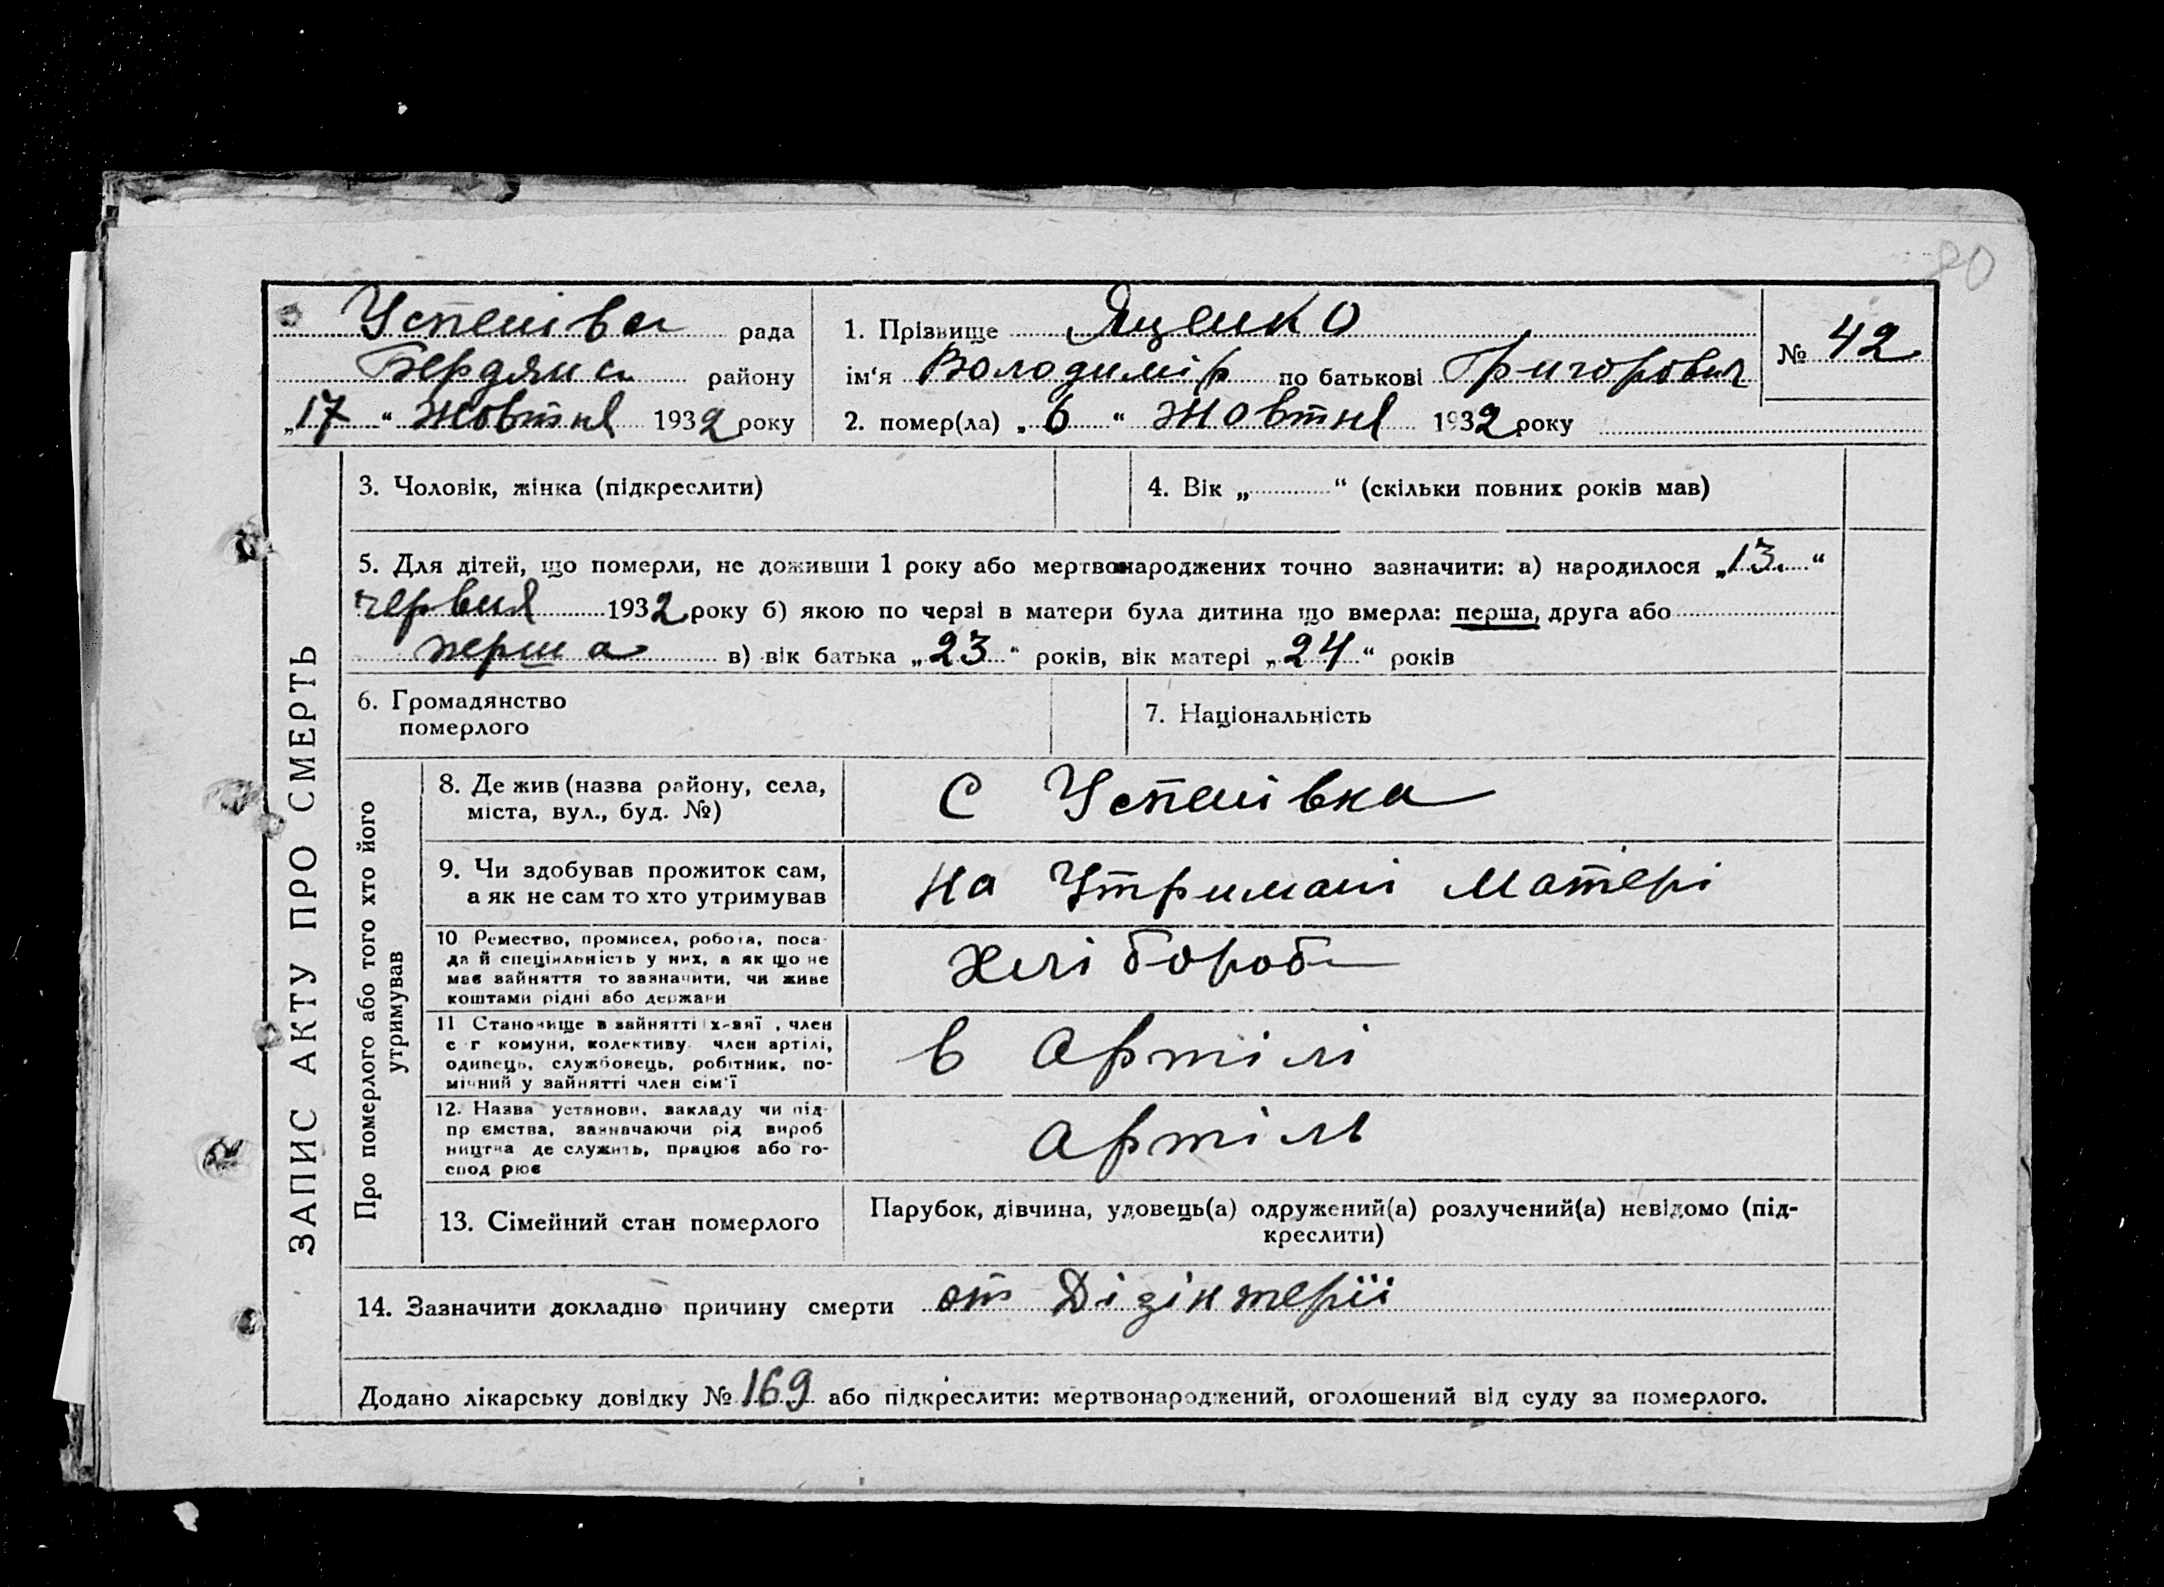 80
Успенівсь рада
Бердянсь району
„17“ Жовтня 1932 року
1. Прізвище Яценко
ім‘я Володимір по батькові Григорович
2. помер(ла) „6“ Жовтня 1932 року
№ 42
ЗАПИС АКТУ ПРО СМЕРТЬ
3. Чоловік, жінка (підкреслити)
4. Вік „ “ (скільки повних років мав)
5. Для дітей, що померли, не доживши 1 року або мертвонароджених точно зазначити: а) народилося „13.“
червня 1932 року б) якою по черзі в матери була дитина що вмерла: перша, друга або
перша в) вік батька „23“ років, вік матері „24“ років
6. Громадянство
померлого
7. Національність
Про померлого або того хто його
утримував
8. Де жив (назва району, села,
міста, вул., буд. №)
С Успенівка
9. Чи здобував прожиток сам,
а як не сам то хто утримував
на Утримані Матері
10 Ремество, промисел, робота, поса-
да й спеціяльність у них, а як що не
має зайняття то зазначити, чи живе
коштами рідні або держави
Хлібороб
11 Становище в зайнятті х-зяї , член
с г комуни, колективу член артілі,
одинець, службовець, робітник, по-
мічний у зайнятті член сім‘ї
в Артілі
12. Назва установи, закладу чи під-
пр ємства, зазначаючи рід вироб
ництва де служить, працює або го-
спод рює
Артіль
13. Сімейний стан померлого
Парубок, дівчина, удовець(а) одружений(а) розлучений(а) невідомо (під-
креслити)
14. Зазначити докладно причину смерти от Дізінтерії
Додано лікарську довідку № 169 або підкреслити: мертвонароджений, оголошений від суду за померлого.